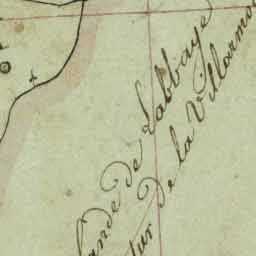 Lande De Labbaye
De la Villarmo